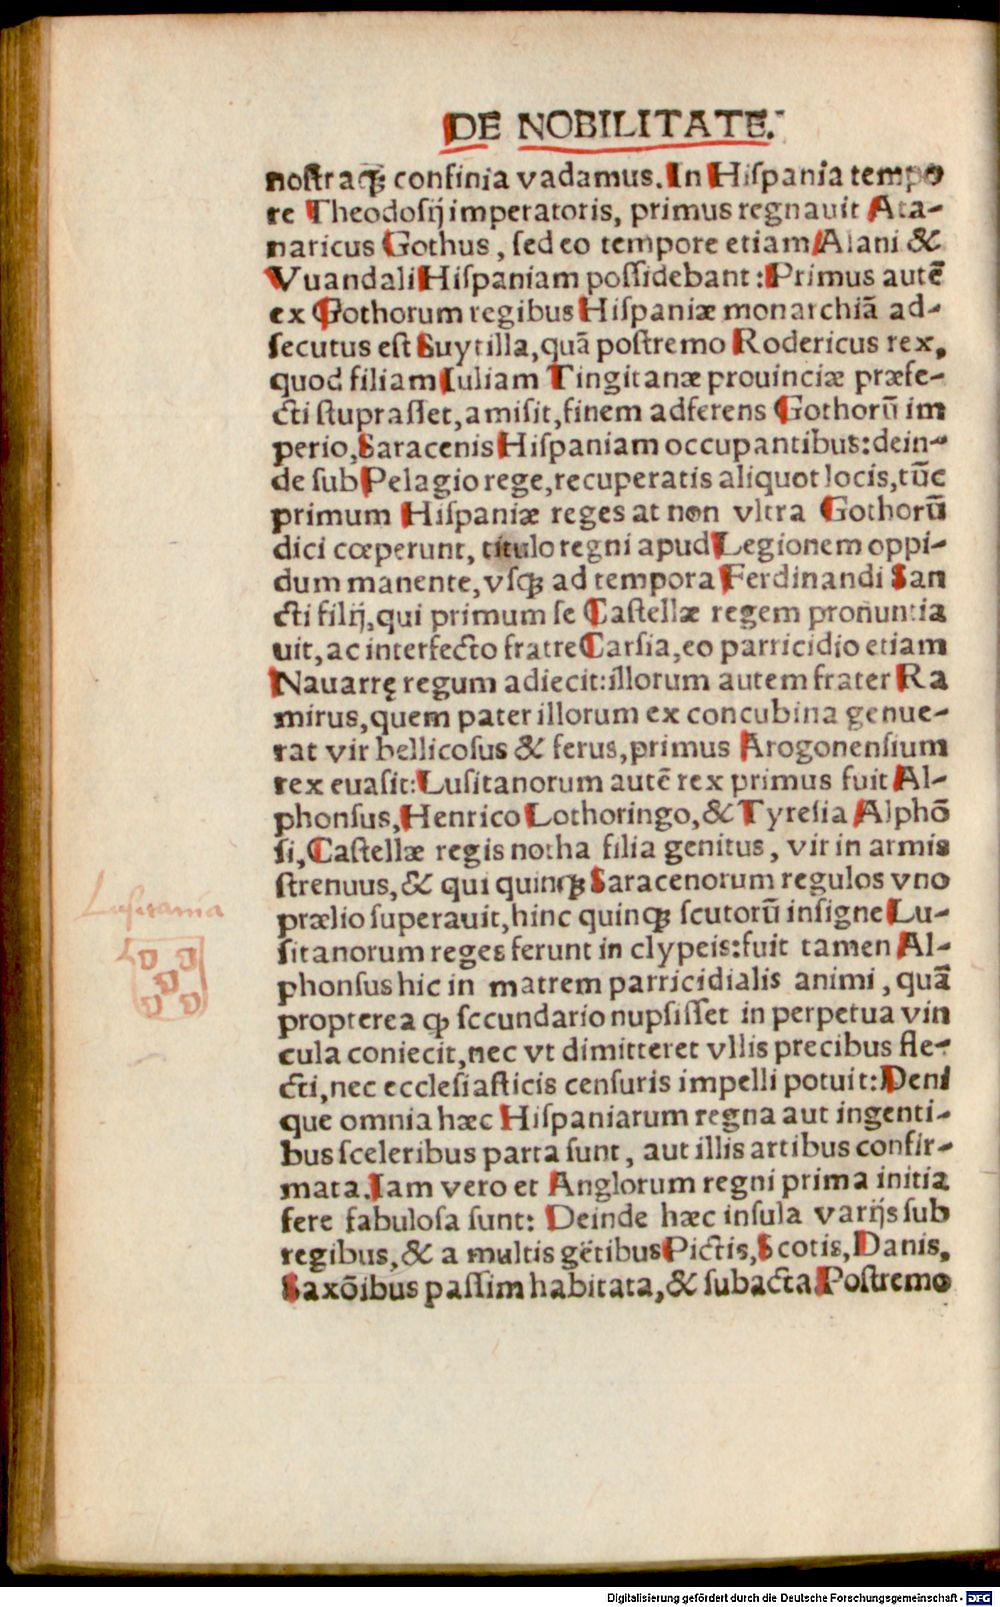 DE NOBILITATE.
noſtraqꝫ confinia vadamus. In Hiſpania tempo
re Theodoſij imperatoris, primus regnauit Ata-
naricus Gothus, ſed eo tempore etiam Alani &
Vuandali Hiſpaniam poſſidebant: Primus autẽ
ex Gothorum regibus Hiſpaniæ monarchiã ad-
ſecutus eſt Suytilla, quã poſtremo Rodericus rex,
quod filiam Iuliam Tingitanæ prouinciæ præfe-
cti ſtupraſſet, amiſit, finem adferens Gothorũ im
perio, Saracenis Hiſpaniam occupantibus: dein-
de ſub Pelagio rege, recuperatis aliquot locis, tũc
primum Hiſpaniæ reges at non vltra Gothorũ
dici cœperunt, titulo regni apud Legionem oppi-
dum manente, vſqꝫ ad tempora Ferdinandi San
cti filij, qui primum ſe Caſtellæ regem pronuntia
uit, ac interfecto fratre Carſia, eo parricidio etiam
Nauarrę regum adiecit: illorum autem frater Ra
mirus, quem pater illorum ex concubina genue-
rat vir bellicoſus & ferus, primus Arogonenſium
rex euaſit: Luſitanorum autẽ rex primus fuit Al-
phonſus, Henrico Lothoringo, & Tyreſia Alphõ
ſi, Caſtellæ regis notha filia genitus, vir in armis
ſtrenuus, & qui quinqꝫ Saracenorum regulos vno
prælio ſuperauit, hinc quinqꝫ ſcutorũ inſigne Lu-
ſitanorum reges ferunt in clypeis: fuit tamen Al-
phonſus hic in matrem parricidialis animi, quã
propterea ꝙ ſecundario nupſiſſet in perpetua vin
cula coniecit, nec vt dimitteret vllis precibus fle-
cti, nec eccleſiaſticis cenſuris impelli potuit: Deni
que omnia hæc Hiſpaniarum regna aut ingenti-
bus ſceleribus parta ſunt, aut illis artibus confir-
mata. Iam vero et Anglorum regni prima initia
fere fabuloſa ſunt: Deinde hæc inſula varijs ſub
regibus, & a multis gẽtibus Pictis, Scotis, Danis,
Saxõibus paſſim habitata, & ſubacta Poſtremo
Lusitania
Digitalisierung gefördert durch die Deutsche Forschungsgemeinschaft - DFG